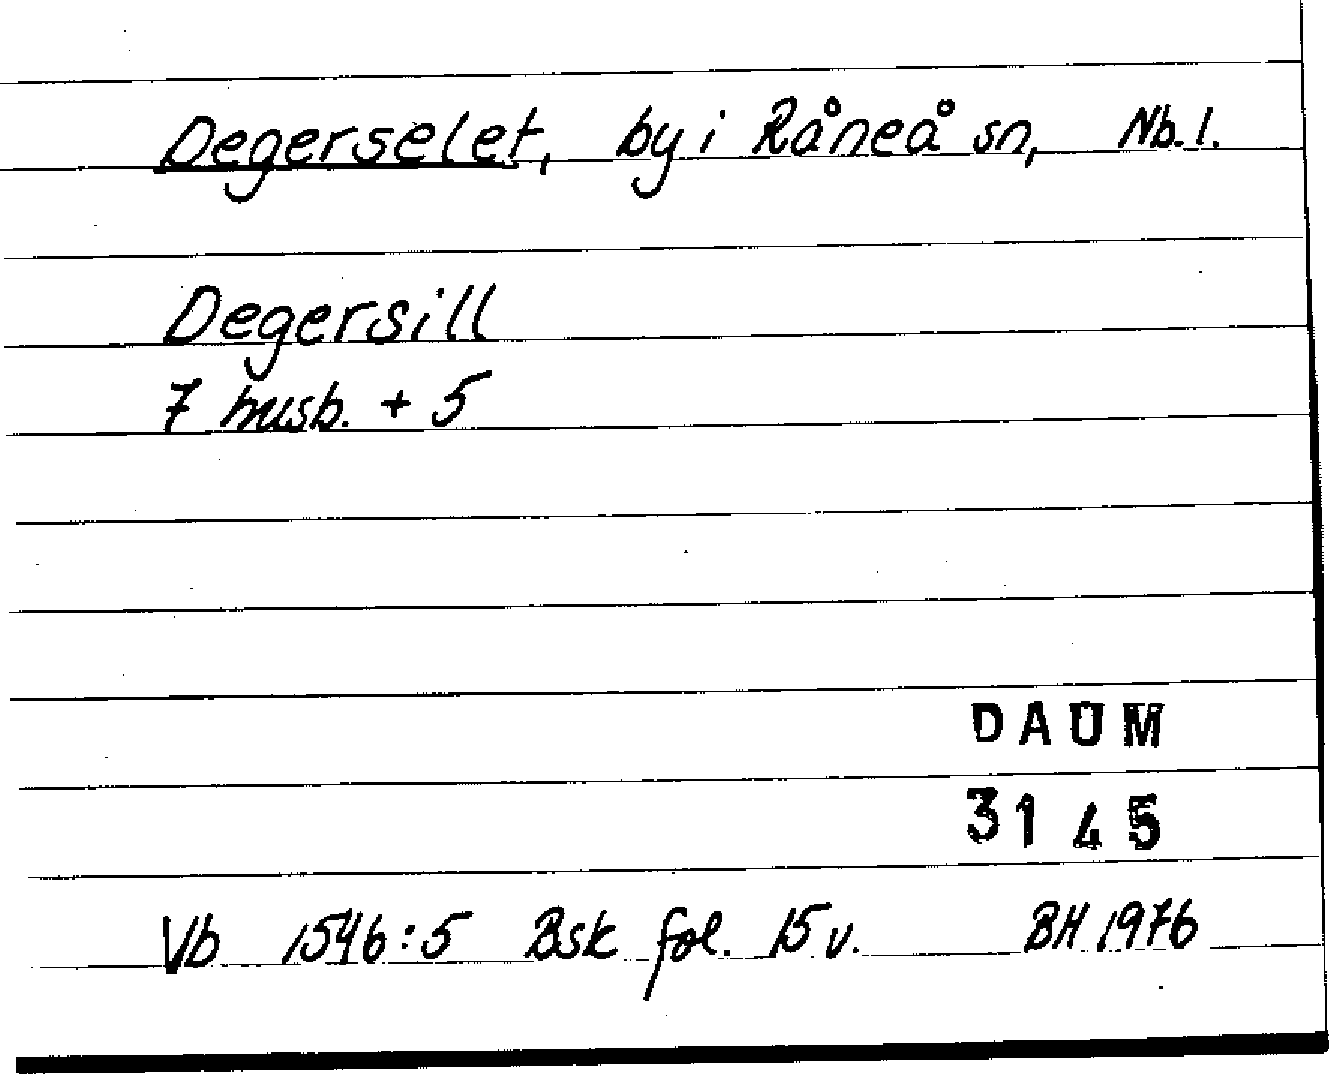 Degerselet, by i Råneå sn, Nb. l.
Degersill
7 husb. + 5
DAUM
3145
Vb 1546:5 Bsk fol. 15 v. BH 1976